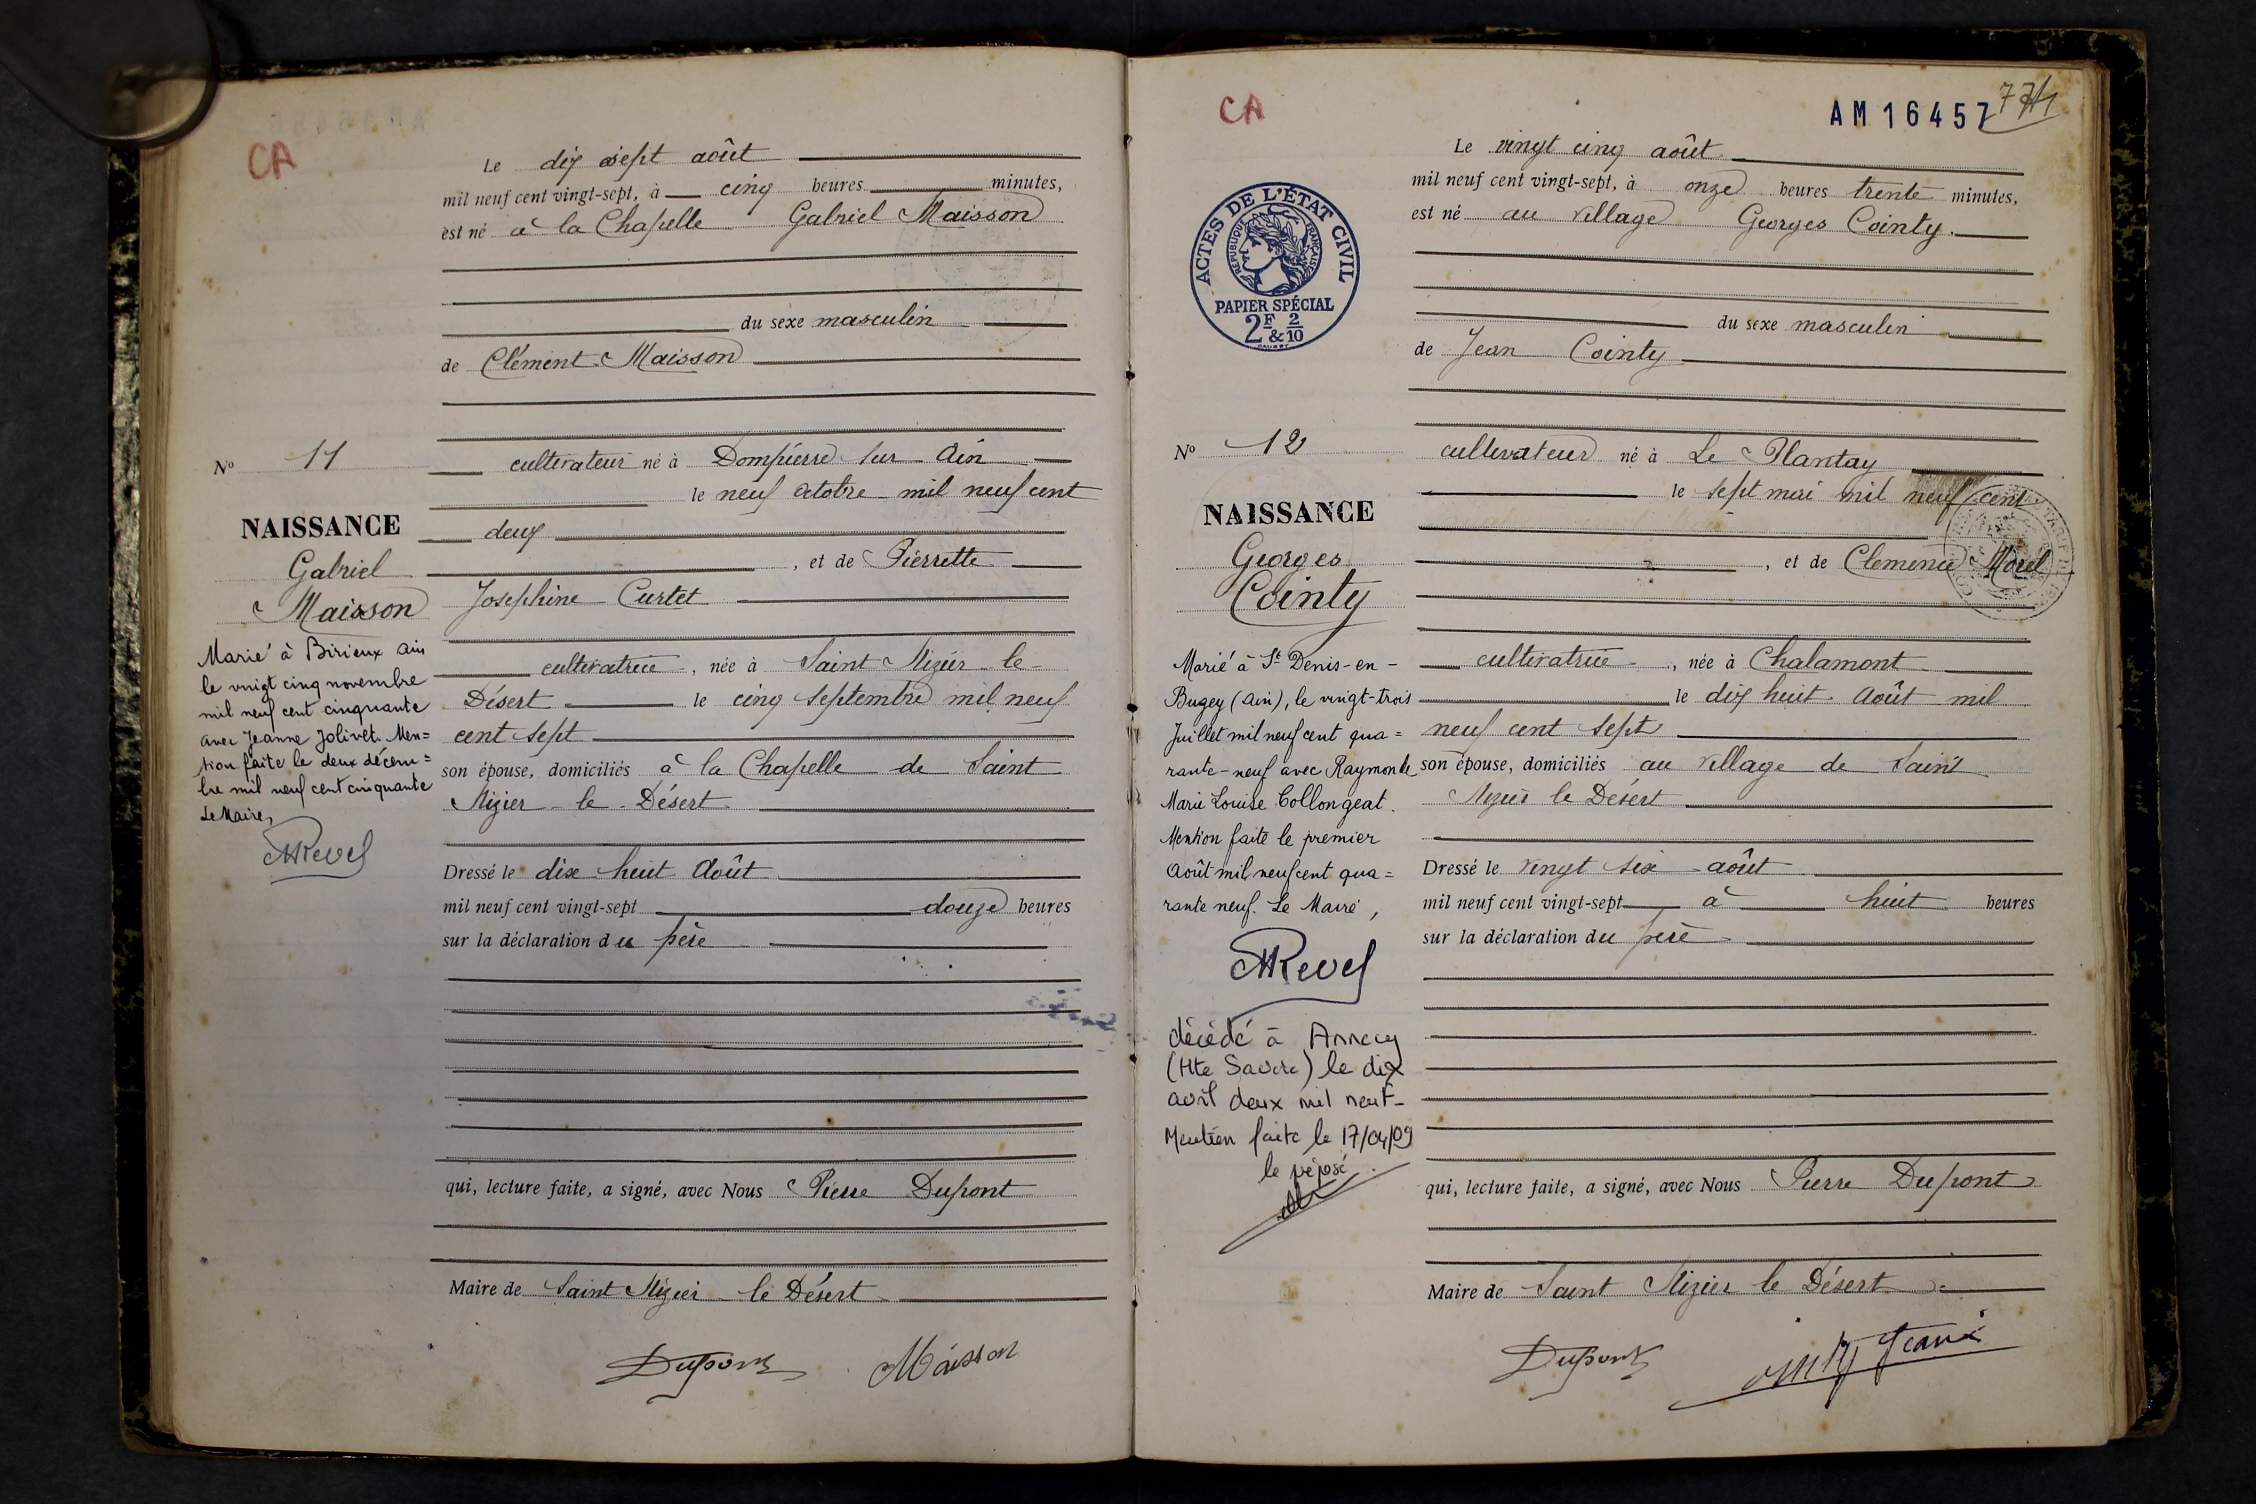 CA
Le dix sept août
mil neuf cent vingt-sept, à cinq heures minutes,
est né à la Chapelle Gabriel Maisson
du sexe masculin
de Clément Maisson
No 11
cultivateur né à Dompierre sur Ain
le neuf octobre mil neuf cent
deux
, et de Pierrette
Josephine Curtet
cultivatrice , née à Saint Nizier le
Désert le cinq septembre mil neuf
cent sept
son épouse, domiciliés à la Chapelle de Saint
Nizier le Désert
Dressé le dix huit Août
mil neuf cent vingt-sept douze heures
sur la déclaration du père
qui, lecture faite, a signé, avec Nous Pierre Dupont
Maire de Saint Nizier le Désert
Dupont Maisson
NAISSANCE
Gabriel
Maisson
Marié à Birieux Ain
le vingt cinq novembre
mil neuf cent cinquante
avec Jeanne Jolivet. Men=
tion faite le deux décem=
bre mil neuf cent cinquante
Le Maire,
Revel
CA
AM16457
Le vingt cinq août
mil neuf cent vingt-sept, à onze heures trente minutes,
est né au village Georges Cointy.
ACTES DE L'ÉTAT CIVIL
RÉPUBLIQUE FRANÇAISE
PAPIER SPÉCIAL
2F & 2/10
du sexe masculin
de Jean Cointy
No 12
cultivateur né à Le Plantay
le sept mai mil neuf cent
, et de Clemence Morel
cultivatrice , née à Chalamont
le dix huit Août mil
neuf cent sept
son épouse, domiciliés au village de Saint
Nizier le Désert
Dressé le vingt six août
mil neuf cent vingt-sept à huit heures
sur la déclaration du père
qui, lecture faite, a signé, avec Nous Pierre Dupont
Maire de Saint Nizier le Désert
Dupont
NAISSANCE
Georges
Cointy
Marié à St Denis-en-
Bugey (Ain), le vingt-trois
Juillet mil neuf cent qua=
rante-neuf avec Raymonde
Marie Louise Collongeat.
Mention faite le premier
Août mil neuf cent qua=
rante neuf. Le Maire,
Revel
décédé à Annecy
(Hte Savoie) le dix
avril deux mil neuf-
Mention faite le 17/04/09